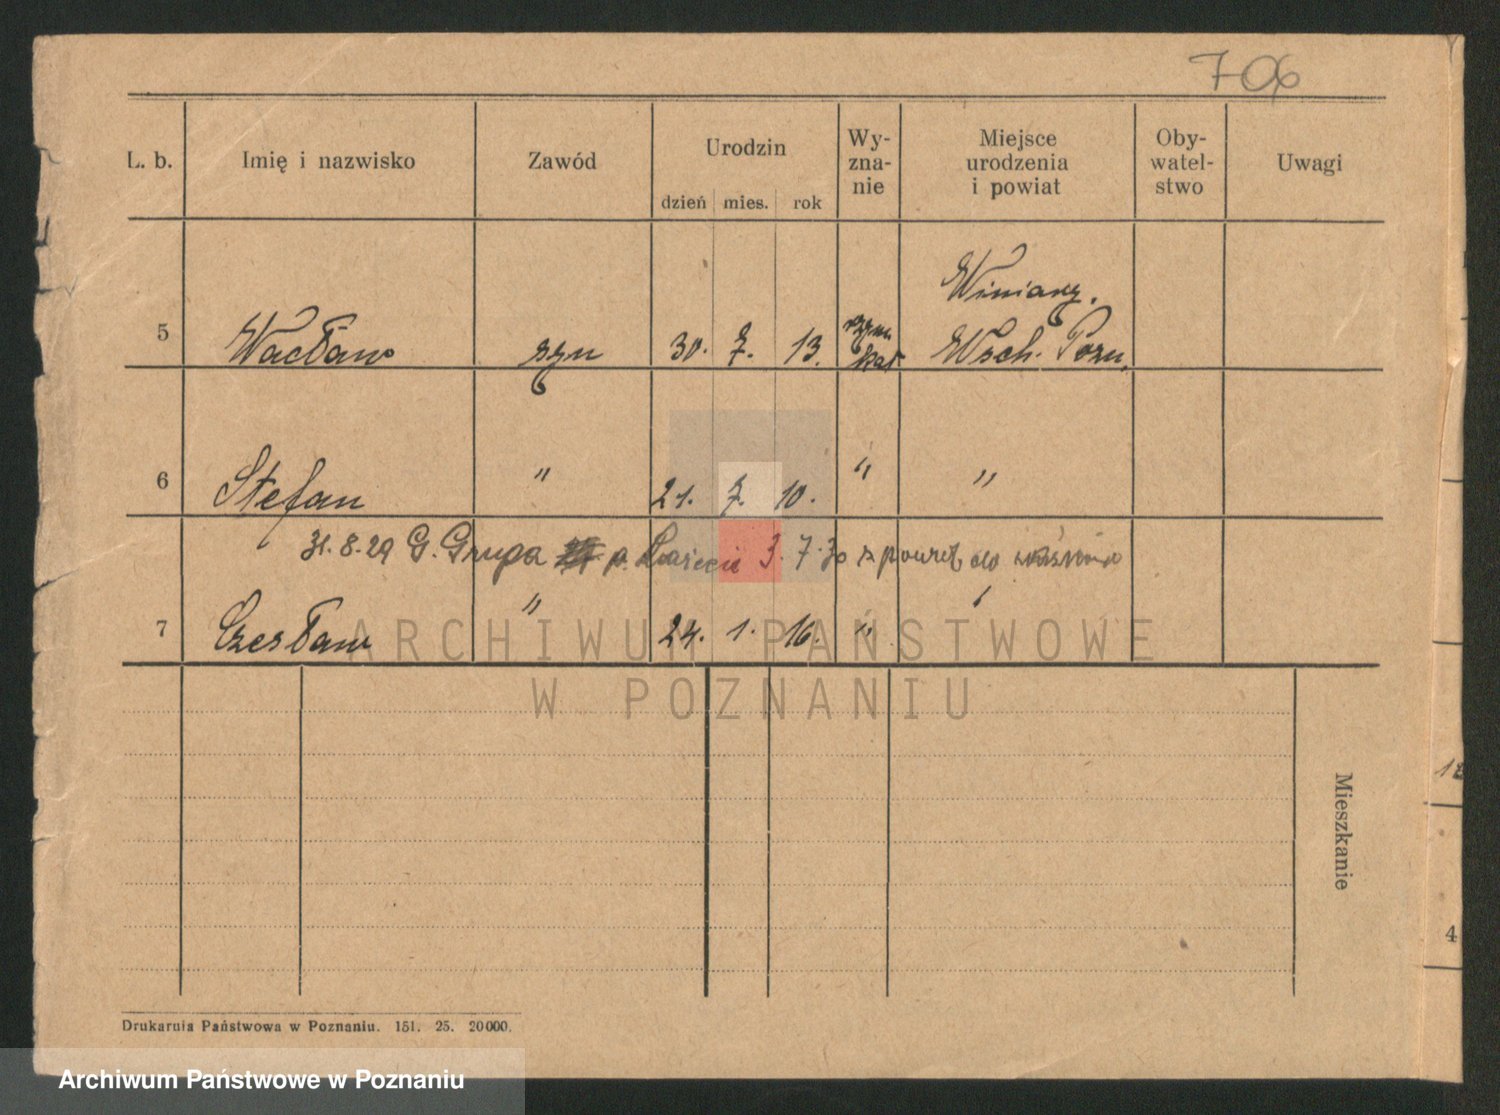 706
L. b. Imię i nazwisko Zawód Urodzin dzień mies. rok Wy-zna-nie Miejsce urodzenia i powiat Oby-watel-stwo Uwagi
Winiary.
5 Wacław syn 30. 7. 13. rzym kat Wsch. Pozn.
6 Stefan " 21. 7. 10. " "
31.8.29 G. Grupa p. 3.7.30 z powrot do
7 Czesław " 24. 1. 16. " "
ARCHIWUM PAŃSTWOWE
W POZNANIU
Mieszkanie
4
Drukarnia Państwowa w Poznaniu. 151. 25. 20000.
Archiwum Państwowe w Poznaniu